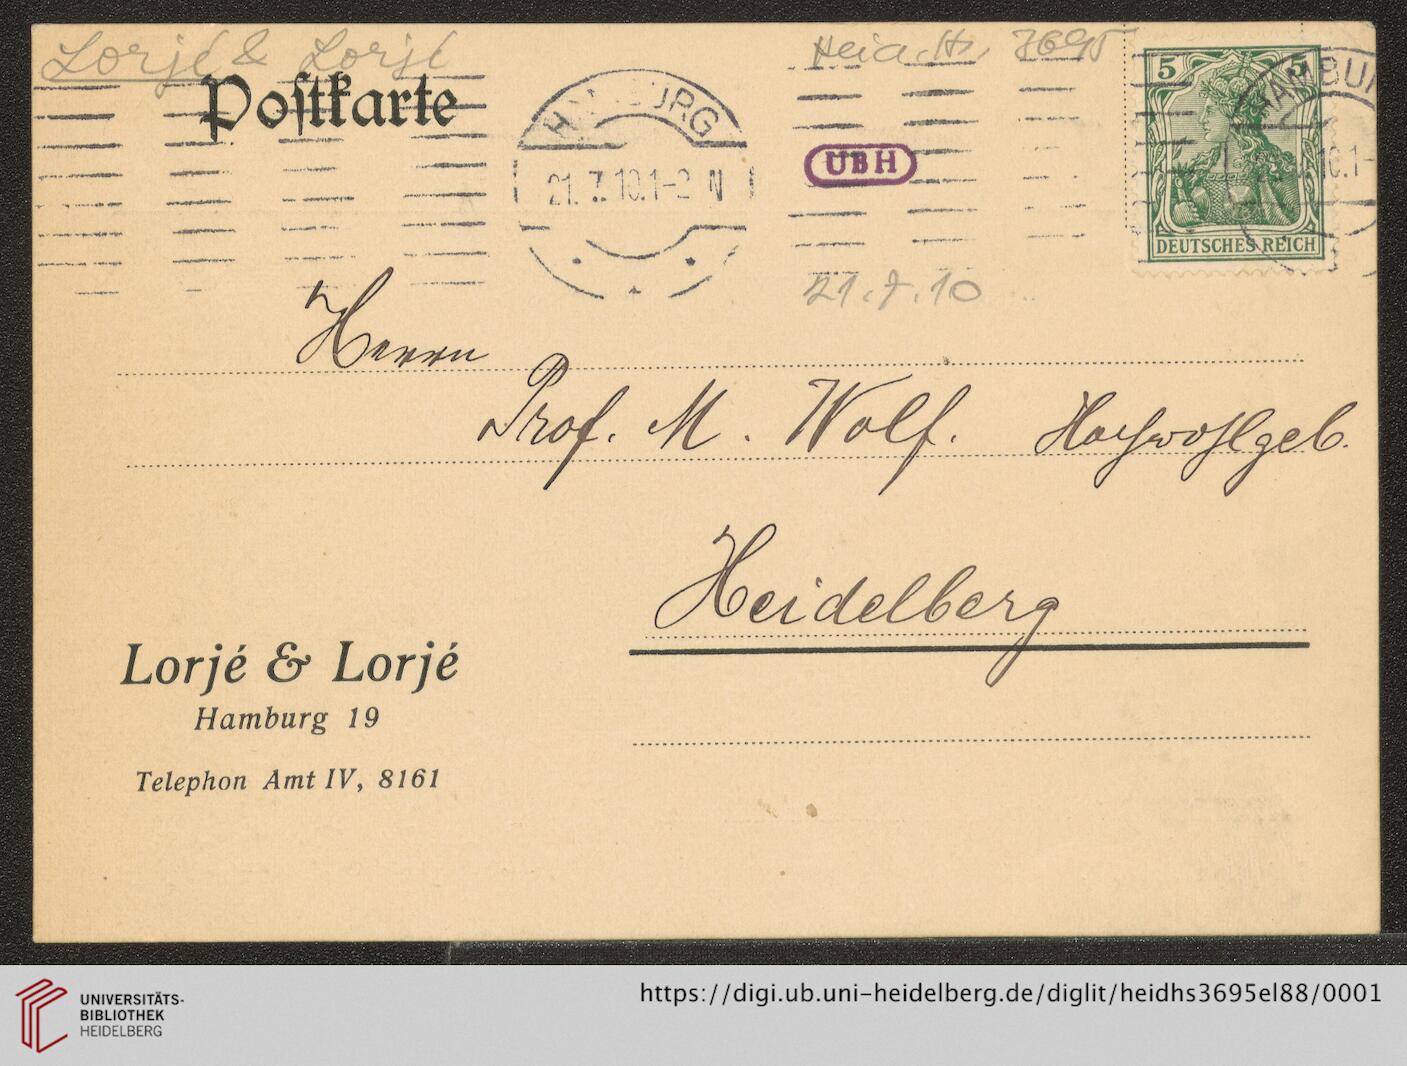 Lorjé & Lorjé
Heid. Hs. 3695
Postkarte
HAMBURG
21.7.10.1-2 N
UBH
5 5
DEUTSCHES REICH
HAMBUR
21.7.10
Herrn
Prof. M. Wolf. Hochwohlgeb.
Heidelberg
Lorjé & Lorjé
Hamburg 19
Telephon Amt IV, 8161
UNIVERSITÄTS-
BIBLIOTHEK
HEIDELBERG
https://digi.ub.uni-heidelberg.de/diglit/heidhs3695el88/0001